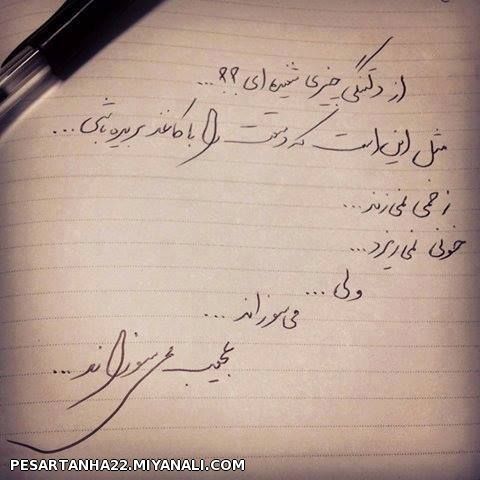 از دلتنگی چیزی شنیده ای؟؟...
مثل این است که دستت را با کاغذ بریده باشی...
زخمی نمی زند...
خونی نمی ریزد...
ولی ...
می سوزاند ...
عجیب می سوزاند ...
PESARTANHA22.MIYANALI.COM